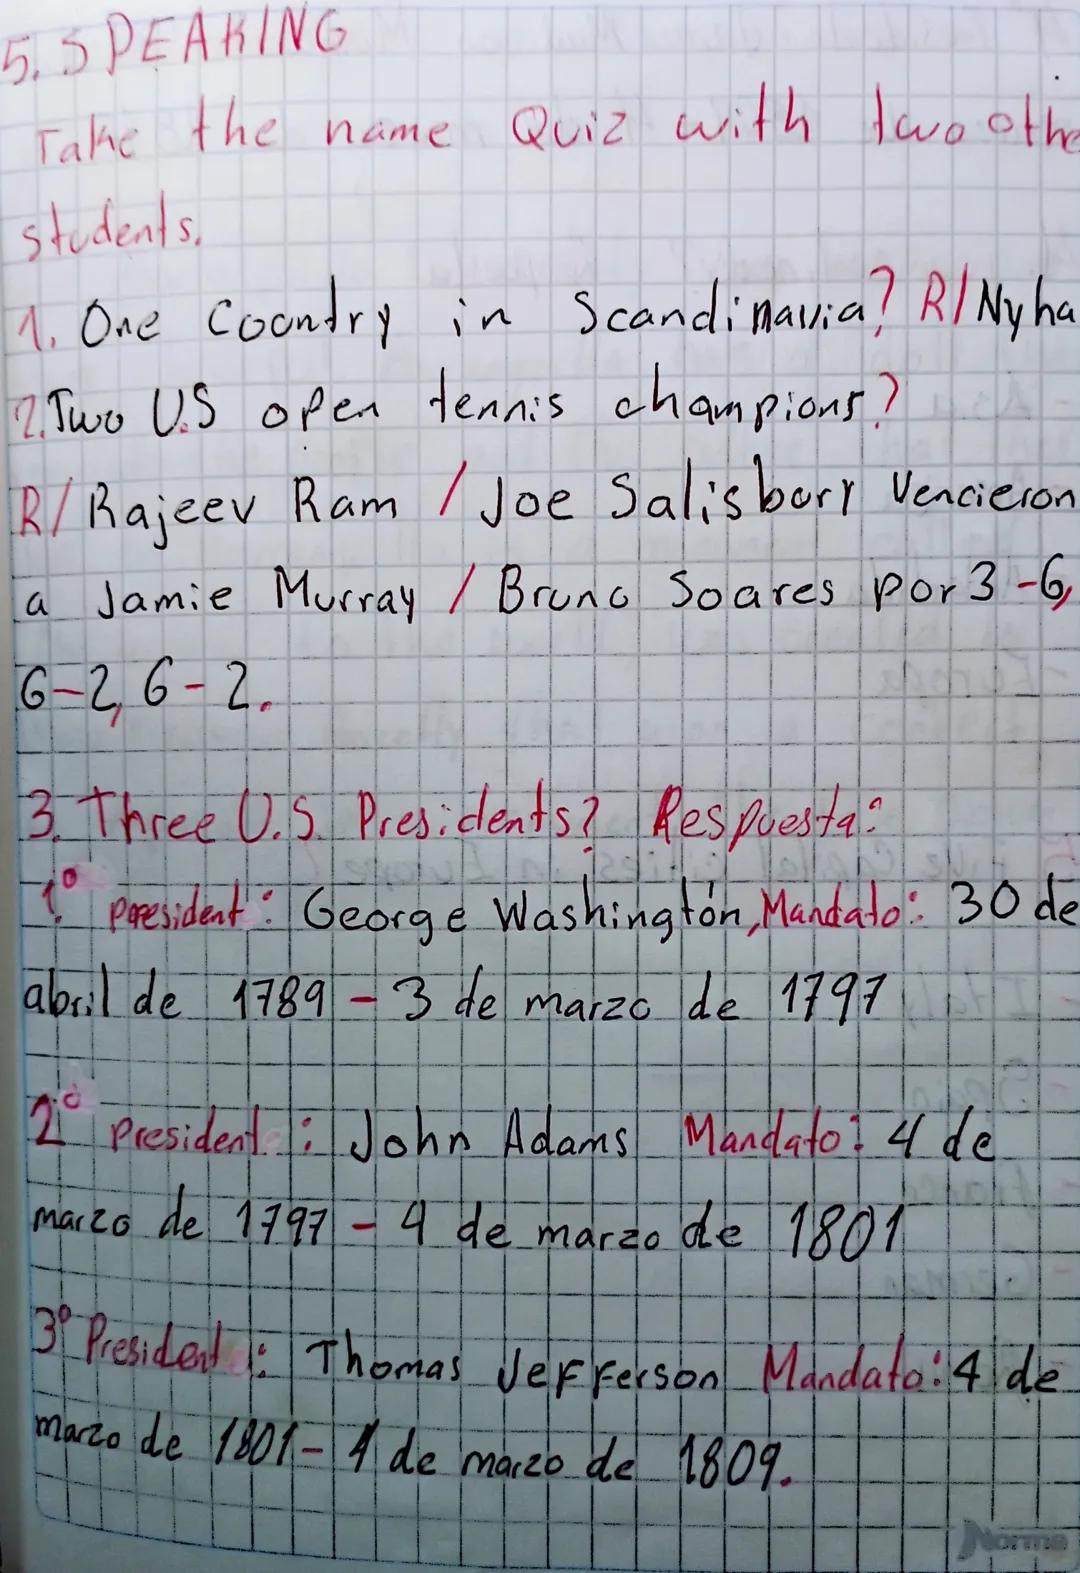 5. SPEAKING
Take the name Quiz with two othe
students.
1. One Coontry in Scandinavia? R/Nyha
2. Two U.S open tennis champions?
R/ Rajeev Ram / Joe Salisbury Vencieron
a Jamie Murray / Bruno Soares por 3-6,
6-2, 6-2.
3. Three U.S. Presidents? Respuesta:
1º president: George Washingtón, Mandato: 30 de
abril de 1789 - 3 de marzo de 1797
2º President: John Adams Mandato: 4 de
marzo de 1797 - 4 de marzo de 1801
3º President: Thomas Jefferson Mandato: 4 de
marzo de 1801 - 4 de marzo de 1809.
Norma